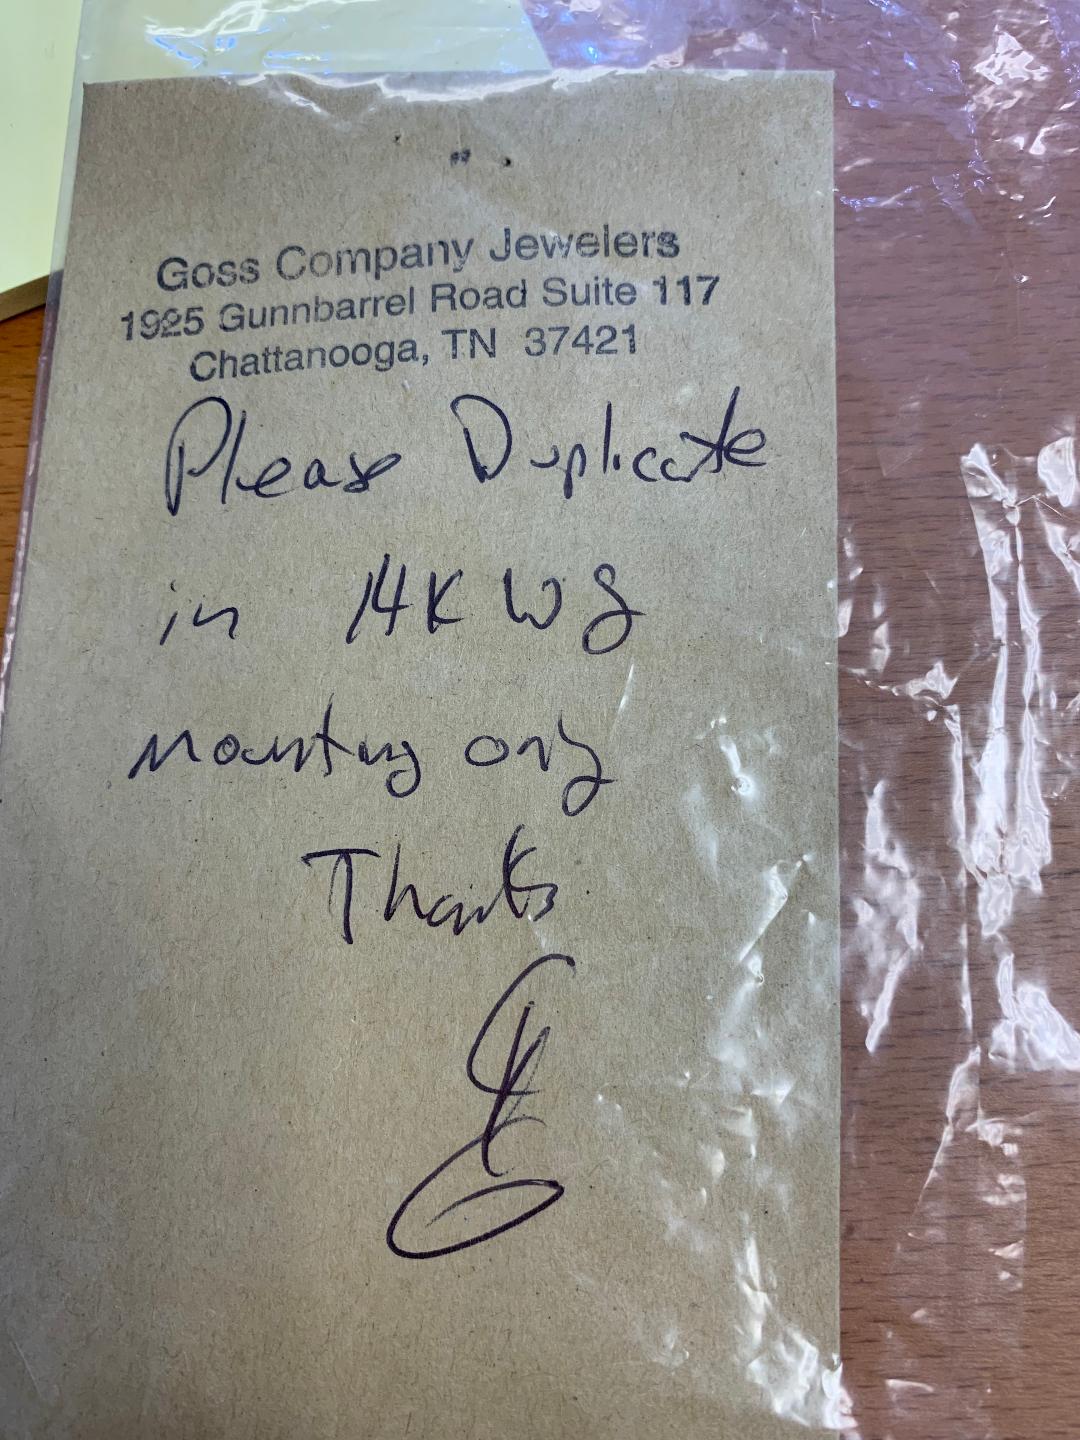 Goss Company Jewelers
1925 Gunnbarrel Road Suite 117
Chattanooga, TN 37421
Please Duplicate
in 14K WG
Mounting only
Thanks